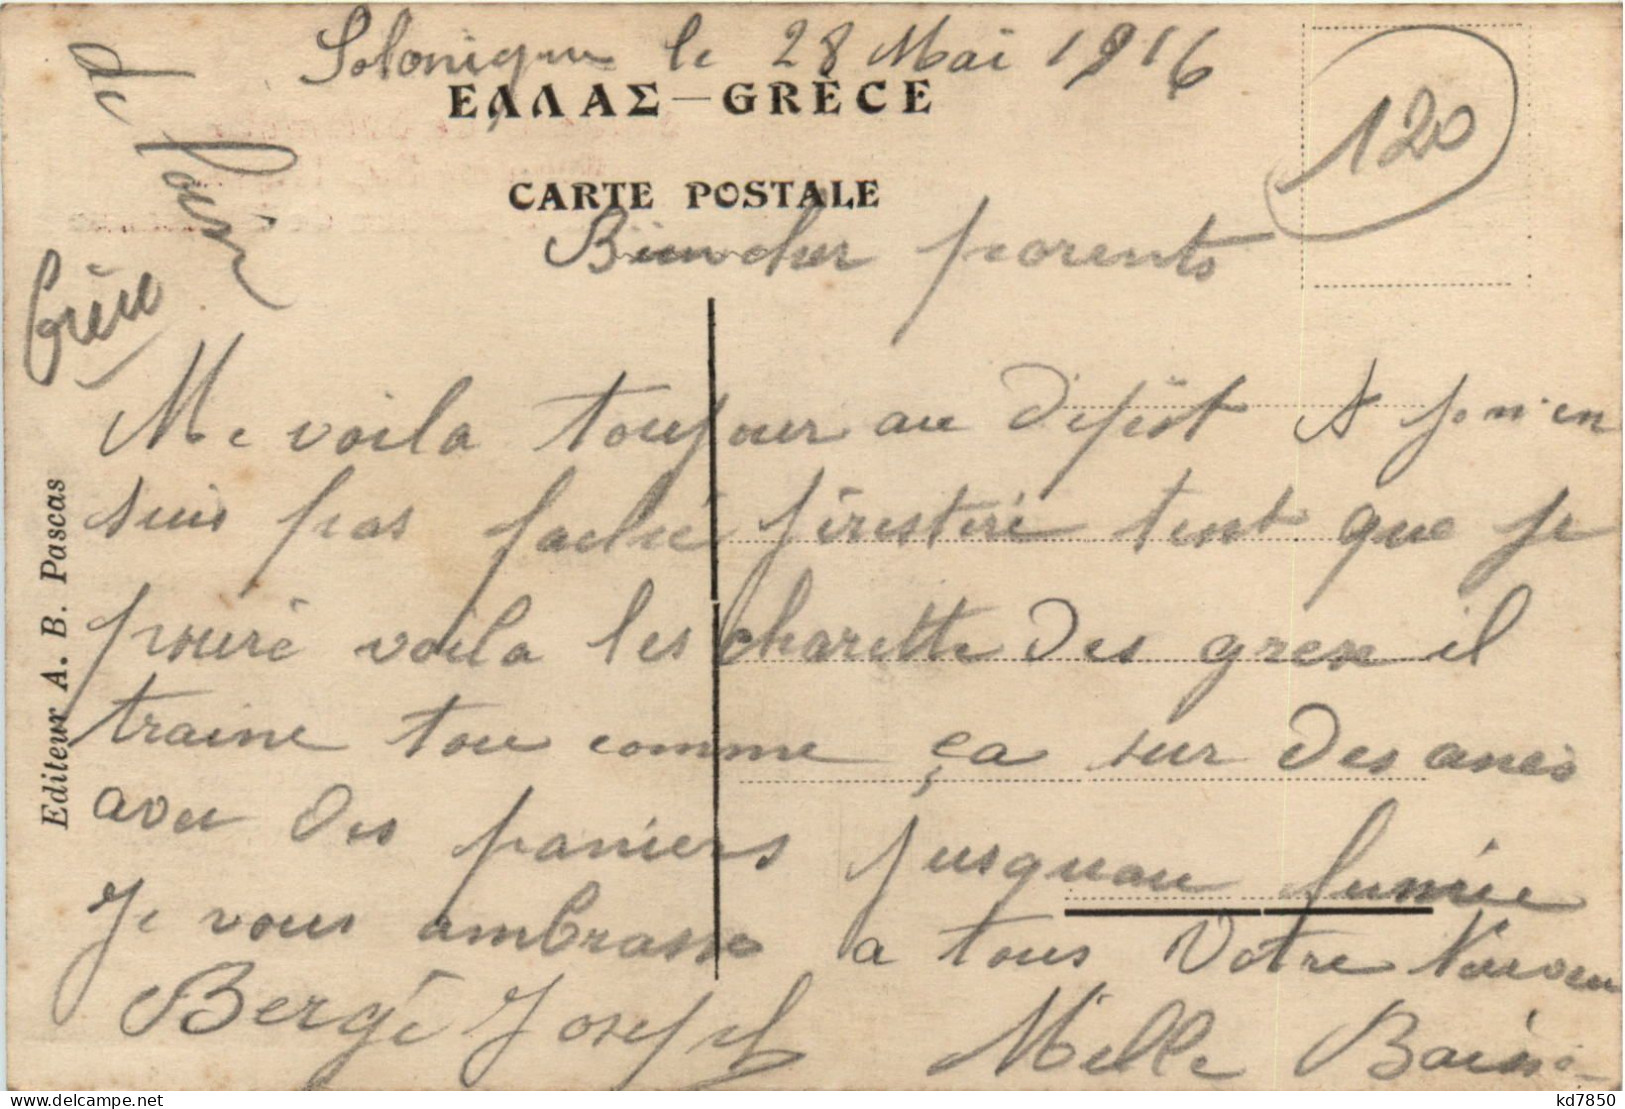 Salonique le 28 Mai 1916
ΕΛΛΑΣ — GRÈCE
CARTE POSTALE
120
Bien cher parents
Me voila toujour au dépot et je n'en
suis pas faché j'irestiré tent que je
pouré voila les charette des grex il
traine tou comme ça sur des anes
avec des paniers jusquau fumié
Je vous ambrasse a tous Votre
Bergé Joseph Mille Baisé
Editeur A. B. Pascas
kd7850